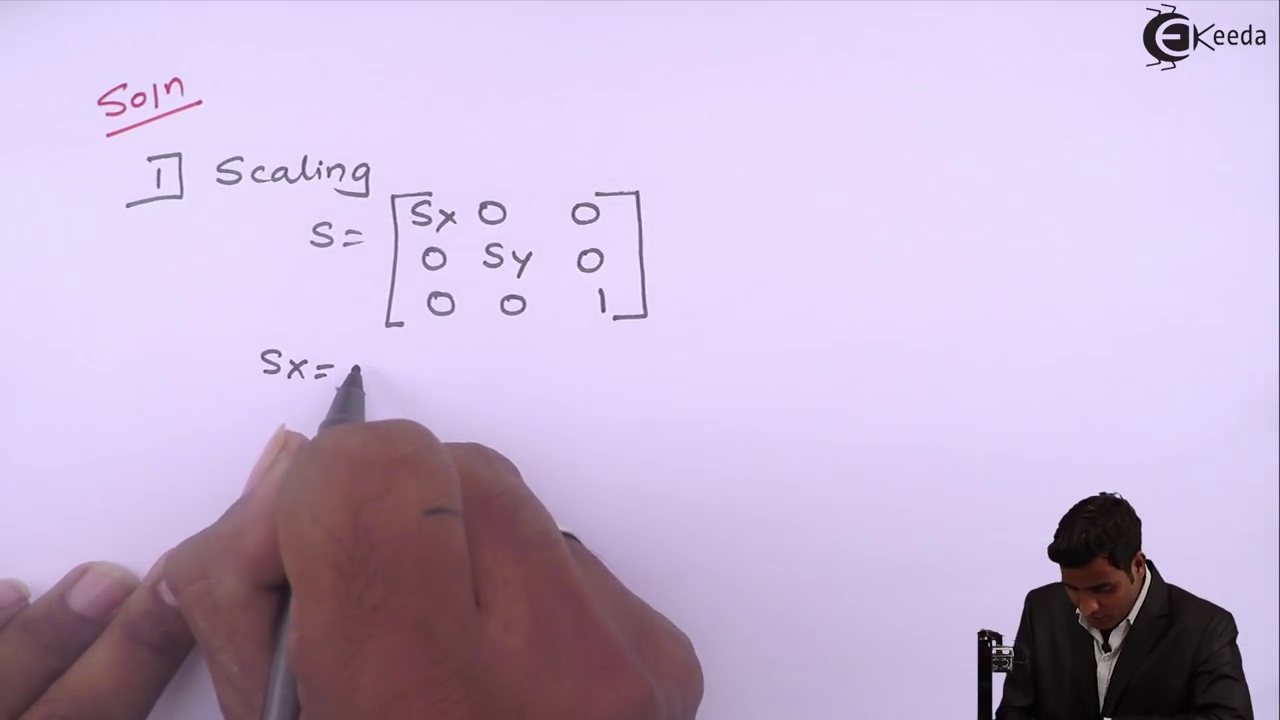 EKeeda
Soln
1 Scaling
S = [ Sx 0 0
0 Sy 0
0 0 1 ]
Sx =